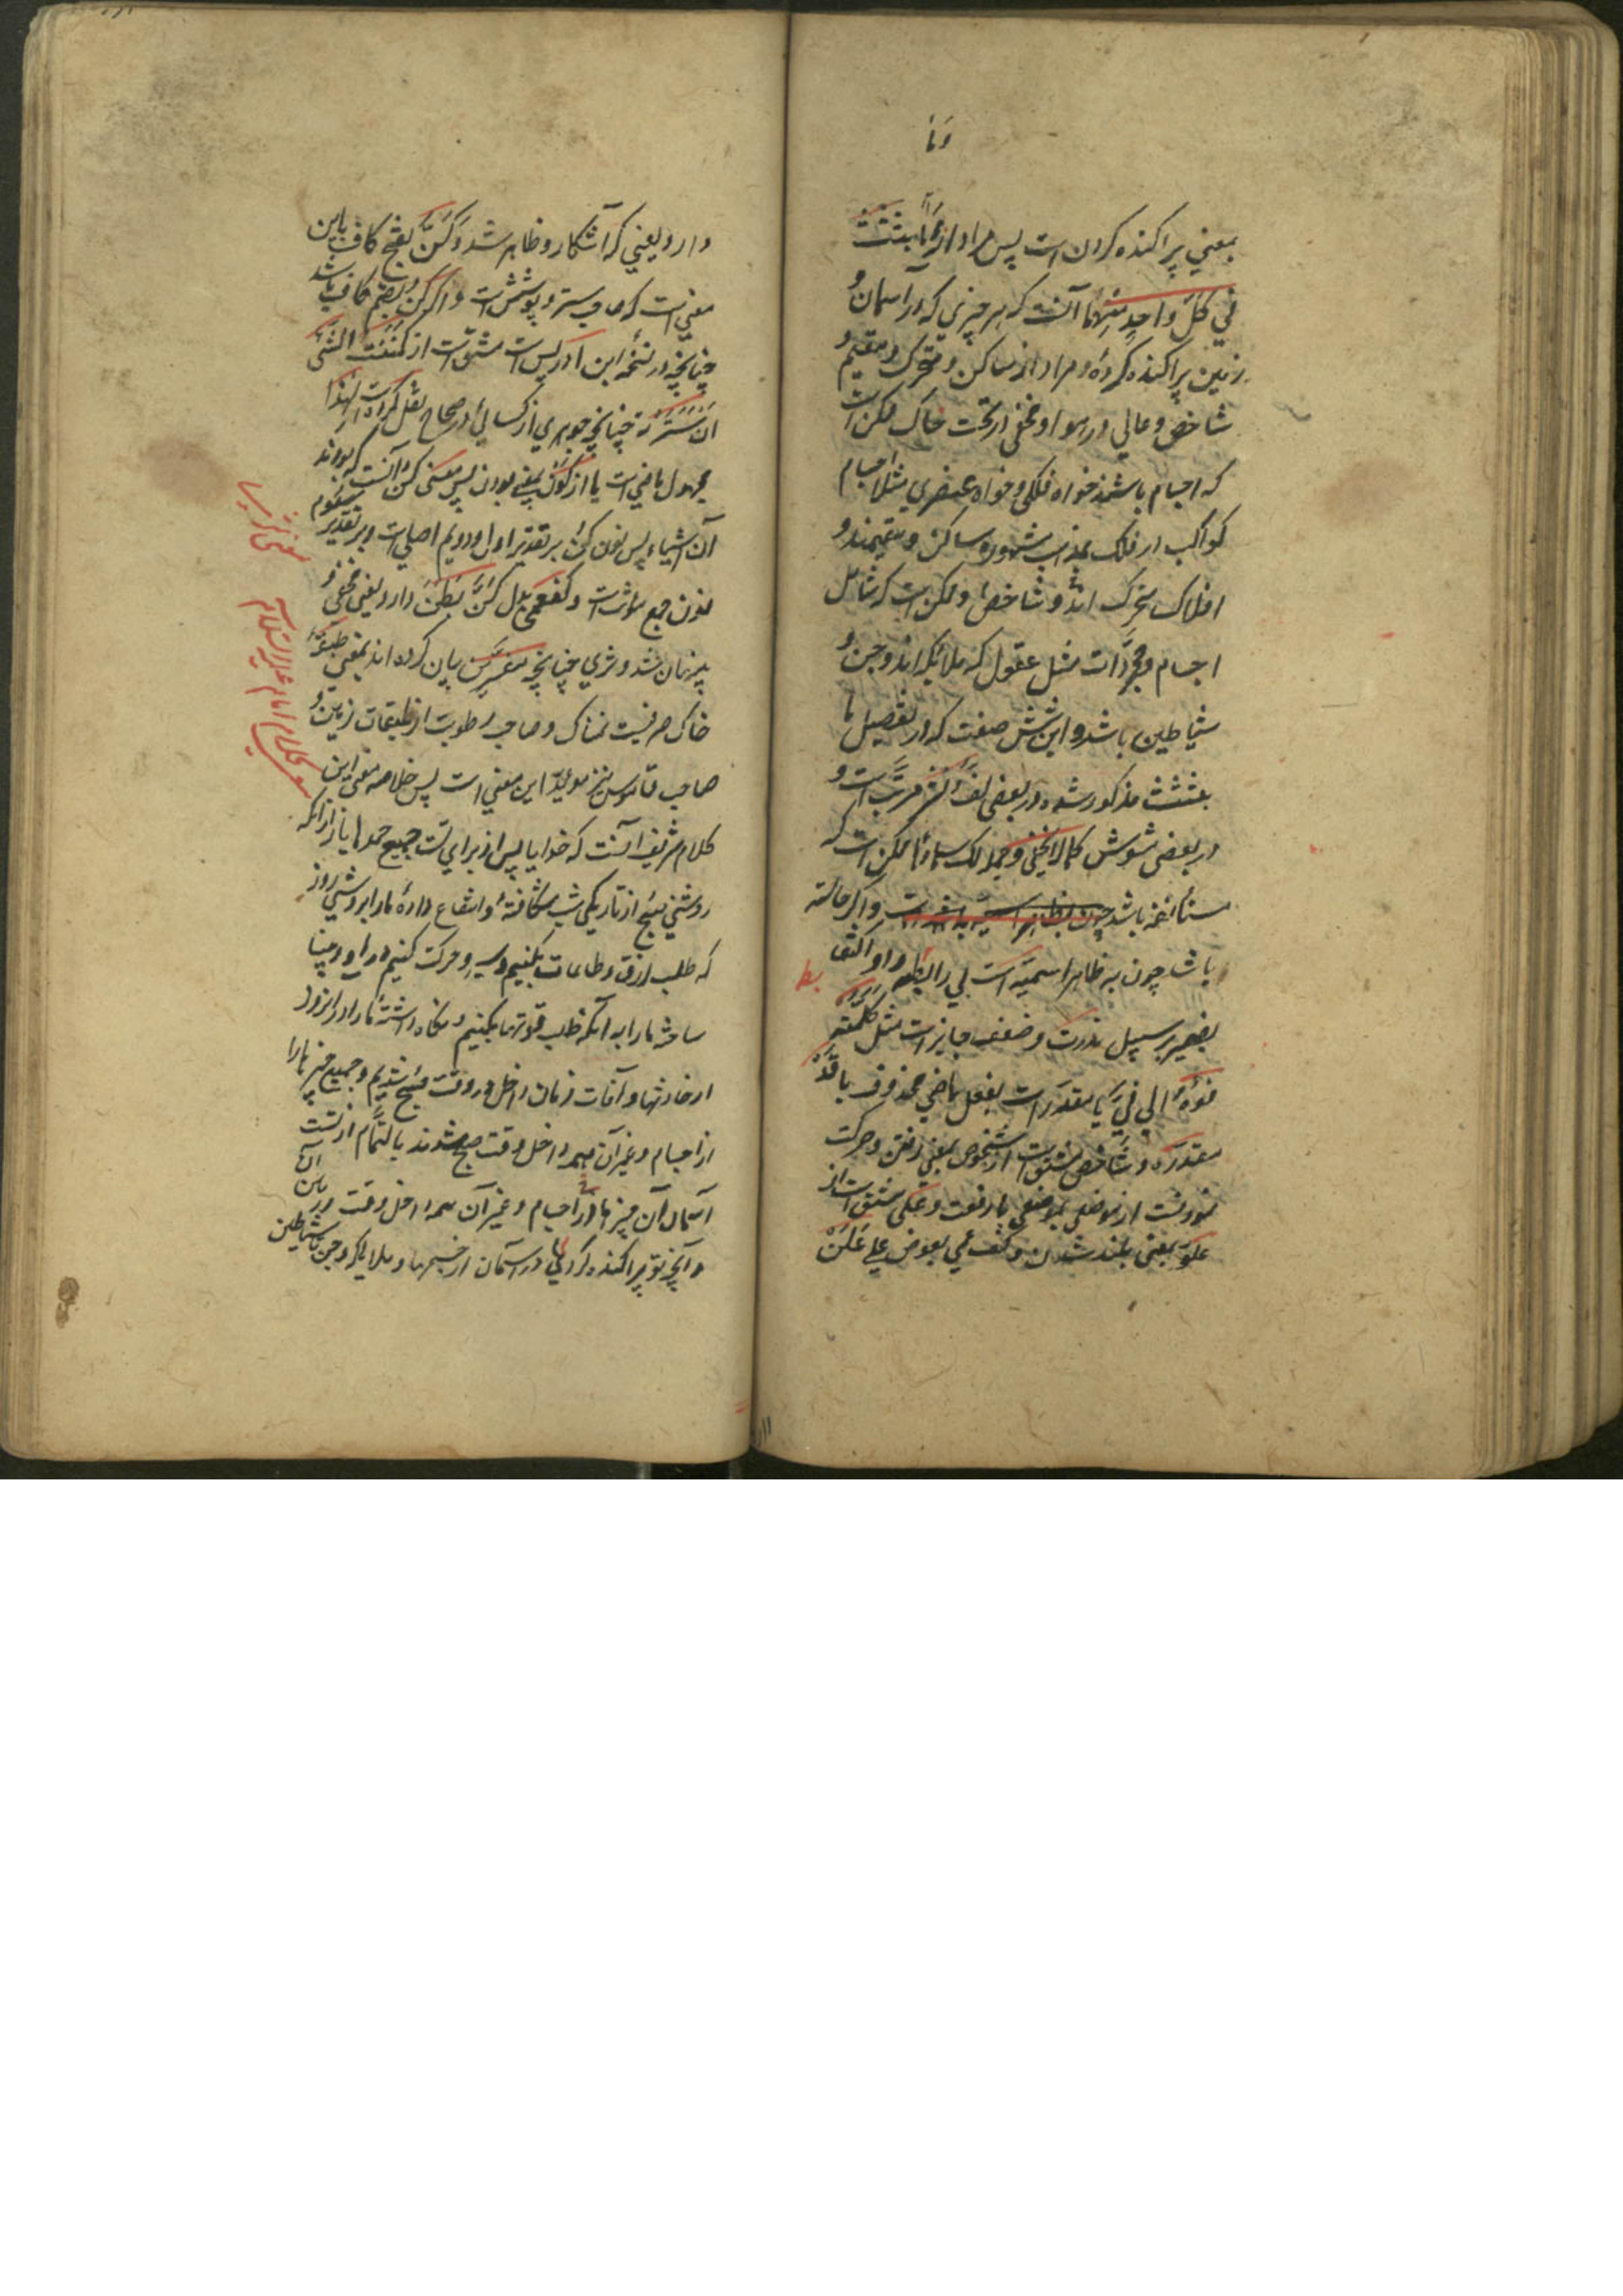 وَمٰا
بمعني پراکنده کردن است پس مراد از وَمٰا بَثَثْتَ
في کلّ واحدٍ منهما آنست که هر چیزی که در آسمان و
زمین پراکنده کردهٔ و مراد از ساکن و متحرّک و مقیم و
شاخص و عالي در هوا و مخفی در تحت خاک ممکن است
که اجسام باشند خواه فلکي و خواه عنصري مثلا اجسام
کواکب در فلک بمذهب مشهوره ساکن و مقیمند و
افلاک متحرک اند و شاخص و ممکن است که شامل
اجسام و مجرّدات مثل عقول که ملائکه اند و جن و
شیاطین باشد و این شش صفت که در تفصیل ما
بثثت مذکور شده در بعضی لفّ و نشر مرتّب است و
در بعضی مشوش کما لایخفی و جمله لک سماؤنا ممکن است که
مستأنفه باشد و اگر حالیه
باشد چون به ظاهر اسمیّه است بي رابطه واو اکتفا
بضمیر بر سبیل ندرت و ضعف جایز است مثل کلّمته
فوهُ الي فيّ یا مقدر است بفعل ماضي محذوف با قَدْ
مقدّره و شاخص مشتق است از شخوص بمعني رفتن و حرکت
نمودنست از موضعي بموضعي با رفعت و علی مشتق است از
علوّ بمعنی بلند شدن و کفعمي بعوض علی عَلَنَ
دارد یعنی که آشکار و ظاهر شد و کَنَّ بفتح کاف باین
معني است که صاحب ستر و پوشش است و اگر کُنّ بضم کاف باشد
چنانچه در نسخهٔ ابن ادریس است مشتق است از کَنَنْتُ الشّئ
اَن سَتَرْتُه چنانچه جوهري از کسائي در صحاح نقل کرده است لهٰذا
مجهول ماضي است یا از کَوْن بمعني بودن پس معنی کُنّ آنست که بودند
آن اشیاء پس نون کُنّ بر تقدیر اول و دویم اصلي است و بر تقدیر سیوم
نون جمع مؤنث است و کفعمي بدل کُنَّ بَطَنَ دارد یعنی مخفي و
پنهان شد و ثري چنانچه مفسّرین بیان کرده اند بمعني طبقهٔ
خاک صرفیست نمناک و صاحب رطوبت از طبقات زمین و
صاحب قاموس نیز مؤیّد این معني است پس خلاصه معنی این
کلام شریف آنست که خدایا پس از برای تست جمیع حمدها باز از آنکه
روشني صبح از تاریکي شب شکافتهٔ و انتفاع دادهٔ ما را بروشني روز
که طلب رزق و طاعات بکنیم و سیر و حرکت کنیم در او و بینا
ساختهٔ ما را به آنکه طلب قوتها بکنیم و نگاه داشتهٔ ما را در او از ورود
از حادثها و آفات زمان داخل در وقت صبح شدیم و جمیع چیزها را
از اجسام و غیر آن همه داخل وقت صبح شدند بالتّمام از تست
آسمان آن چیزها از اجسام و غیر آن همه داخل وقت
و آنچه تو پراکنده کردي در آسمان از جسمها و ملایکه و جن و شیاطین